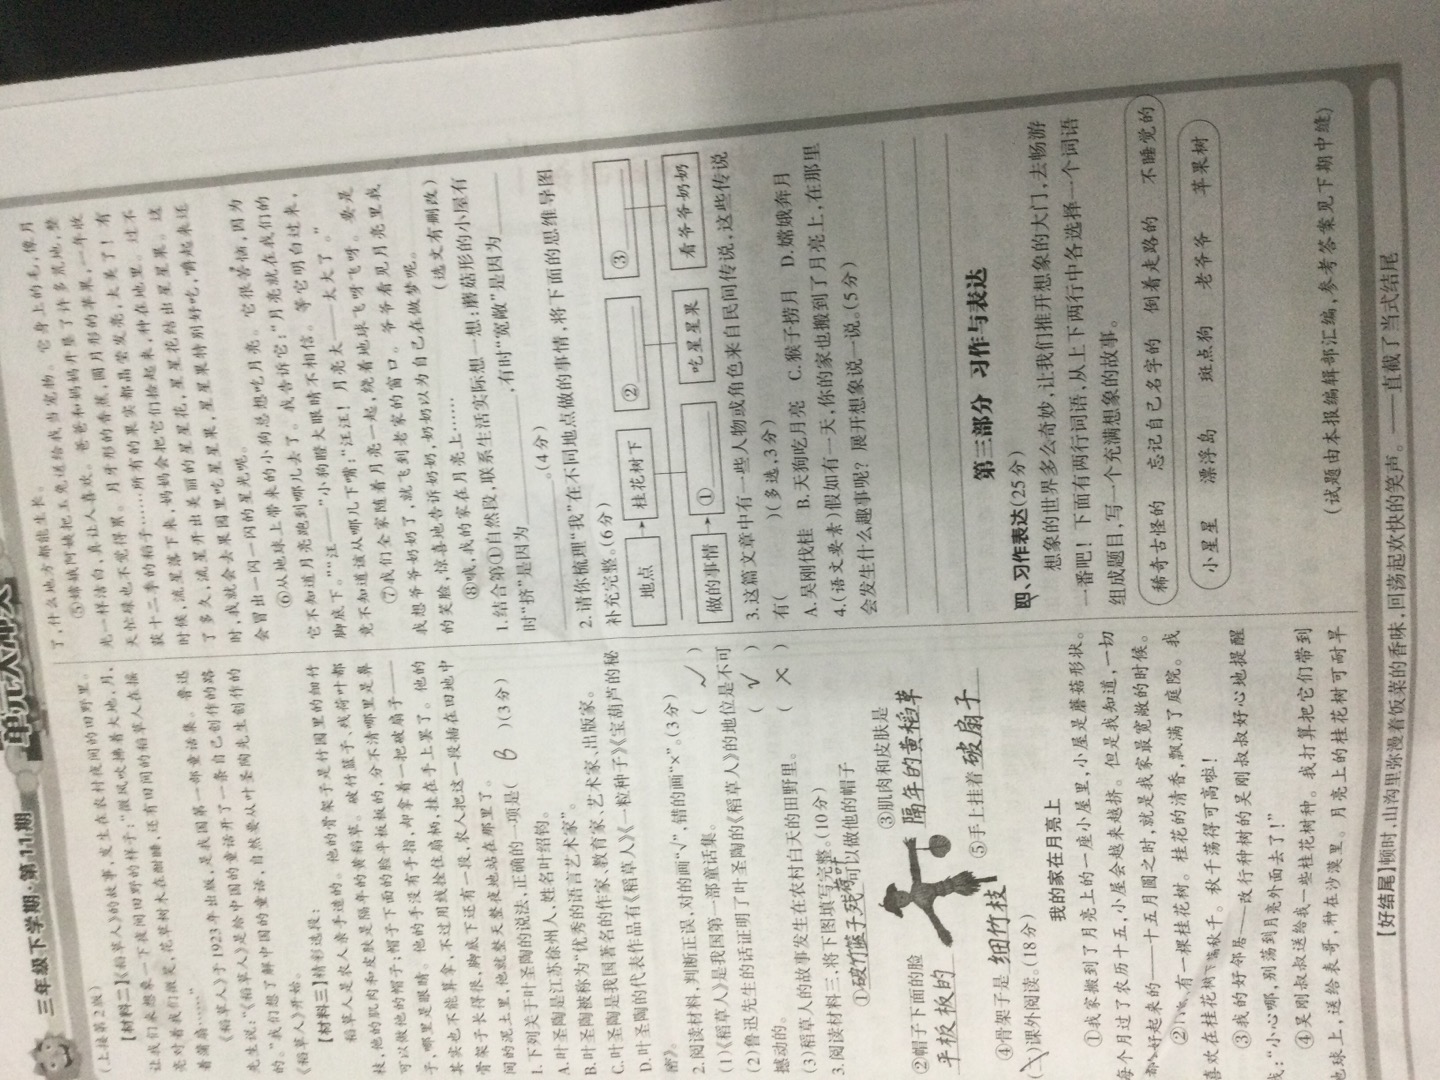 三年级下学期·第11期
单元大冲关
(上接第2版)
【材料二】《稻草人》的故事,发生在农村夜间的田野里。
让我们来想象一下夜间田野的样子:“微风吹拂着大地,月
亮对着我们微笑,花草树木在酣睡,还有田间的稻草人在摇
着蒲扇……”
《稻草人》于1923年出版,是我国第一部童话集。鲁迅
先生说:“《稻草人》是给中国的童话开了一条自己创作的路
的。”我们想了解中国的童话,自然要从叶圣陶先生创作的
《稻草人》开始。
【材料三】精彩选段:
稻草人是农人亲手造的。他的骨架子是竹园里的细竹
枝,他的肌肉和皮肤是隔年的黄稻草。破竹篮子、残荷叶都
可以做他的帽子;帽子下面的脸平板板的,分不清哪里是鼻
子,哪里是眼睛。他的手没有手指,却拿着一把破扇子——
其实也不能算拿,不过用线拴住扇柄,挂在手上罢了。他的
骨架子长得很,脚底下还有一段,农人把这一段插在田地中
间的泥土里,他就整天整夜地站在那里了。
1.下列关于叶圣陶的说法,正确的一项是( B )(3分)
A.叶圣陶是江苏徐州人,姓名叶绍钧。
B.叶圣陶被称为“优秀的语言艺术家”。
C.叶圣陶是我国著名的作家、教育家、艺术家、出版家。
D.叶圣陶的代表作品有《稻草人》《一粒种子》《宝葫芦的秘
密》。
2.阅读材料,判断正误,对的画“√”,错的画“×”。(3分)
(1)《稻草人》是我国第一部童话集。 ( √ )
(2)鲁迅先生的话证明了叶圣陶的《稻草人》的地位是不可
撼动的。 ( √ )
(3)稻草人的故事发生在农村白天的田野里。 ( × )
3.阅读材料三,将下图填写完整。(10分)
①破竹篮子残荷叶可以做他的帽子
②帽子下面的脸
平板板的
③肌肉和皮肤是
隔年的黄稻草
④骨架子是细竹枝
⑤手上挂着破扇子
(二)课外阅读。(18分)
我的家在月亮上
①我家搬到了月亮上的一座小屋里,小屋是蘑菇形状。
每个月过了农历十五,小屋会越来越挤。但是我知道,一切
都会好起来的——十五月圆之时,就是我家最宽敞的时候。
②有一棵桂花树。桂花的清香,飘满了庭院。我
喜欢在桂花树下荡秋千。秋千荡得可高啦!
③我的好邻居——改行种树的吴刚叔叔好心地提醒
我:“小心哪,别荡到月亮外面去了!”
④吴刚叔叔送给我一些桂花树种。我打算把它们带到
地球上,送给表哥,种在沙漠里。月亮上的桂花树可耐旱
了,什么地方都能生长。
⑤嫦娥阿姨把玉兔送给我当宠物。它身上的毛,像月
光一样洁白,真让人喜欢。爸爸和妈妈开垦了许多荒地,整
天忙碌也不觉得累。月牙形的香蕉,圆月形的苹果,一年收
获十二季的稻子……所有的果实都晶莹发亮,太美了!有
时候,流星落下来,妈妈会把它们捡起来,种在地里。过不
了多久,流星开出美丽的星星花,星星花结出星星果。这
时,我就会去果园里吃星星果,星星果特别好吃,嚼起来还
会冒出一闪一闪的星光呢。
⑥从地球上带来的小狗总想吃月亮。它很苦恼,因为
它不知道月亮跑到哪儿去了。我告诉它:“月亮就在我们的
脚底下。”“汪——”小狗瞪大眼睛不相信。等它明白过来,
竟不知道该从哪儿下嘴:“汪汪!月亮太——太大了。”
⑦我们全家随着月亮一起,绕着地球飞呀飞呀。要是
我想爷爷奶奶了,就飞到老家的窗口。爷爷看见月亮里我
的笑脸,惊喜地告诉奶奶,奶奶以为自己在做梦呢。
⑧哦,我的家在月亮上…… (选文有删改)
1.结合第①自然段,联系生活实际想一想:蘑菇形的小屋有
时“挤”是因为 ,有时“宽敞”是因为
。(4分)
2.请你梳理“我”在不同地点做的事情,将下面的思维导图
补充完整。(6分)
地点 桂花树下 ② ③
做的事情 ① 吃星星果 看爷爷奶奶
3.这篇文章中有一些人物或角色来自民间传说,这些传说
有( )(多选,3分)
A.吴刚伐桂 B.天狗吃月亮 C.猴子捞月 D.嫦娥奔月
4.(语文要素)假如有一天,你的家也搬到了月亮上,在那里
会发生什么趣事呢?展开想象说一说。(5分)
第三部分 习作与表达
四、习作表达(25分)
想象的世界多么奇妙,让我们推开想象的大门,去畅游
一番吧!下面有两行词语,从上下两行中各选择一个词语
组成题目,写一个充满想象的故事。
稀奇古怪的 忘记自己名字的 倒着走路的 不睡觉的
小星星 漂浮岛 斑点狗 老爷爷 苹果树
(试题由本报编辑部汇编,参考答案见下期中缝)
【好结尾】顿时,山沟里弥漫着饭菜的香味,回荡起欢快的笑声。——直截了当式结尾